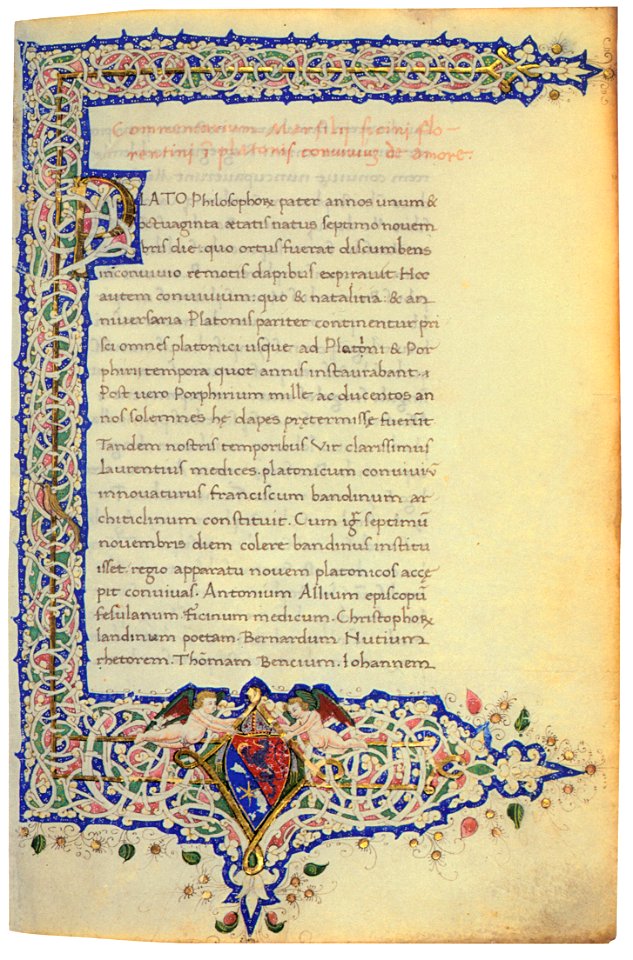 Commentarium Marsilij ficini flo-
rentini ī platonis convivium de amore.
PLATO Philosophoꝝ pater annos unum &
octuaginta ætatis natus septimo novem
bris die. quo ortus fuerat discumbens
in convivio remotis dapibus expiravit. Hoc
autem convivium: quo & natalitia: & an
niversaria Platonis pariter continentur pri
sci omnes platonici usque ad Plotini & Por
phirii tempora quot annis instaurabant.
Post vero Porphirium mille ac ducentos an
nos solemnes he dapes pretermisse fuerūt.
Tandem nostris temporibus Vir clarissimus
Laurentius medices. platonicum conviviū
innovaturus franciscum bandinum ar
chiticlinum constituit. Cum igr̄ septimū
novembris diem colere bandinus institu
isset. regio apparatu novem platonicos accę
pit convivas. Antonium Allium episcopū
fesulanum. Ficinum medicum. Christophoꝝ
landinum poetam. Bernardum Nutium
rhetorem. Thōmam Bencium. Iohannem